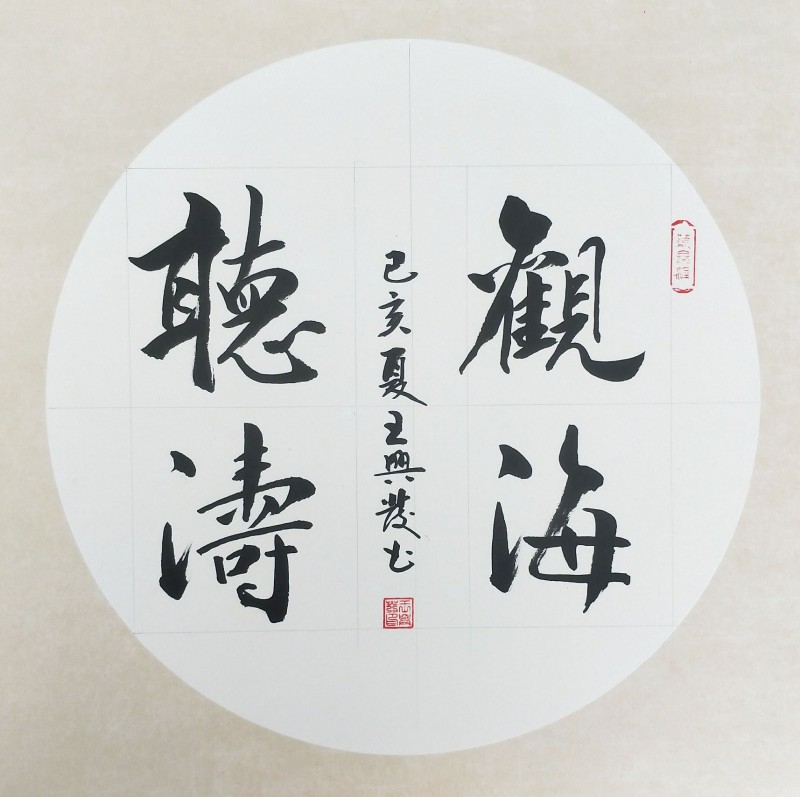 觀海
聽濤
己亥夏王興發书